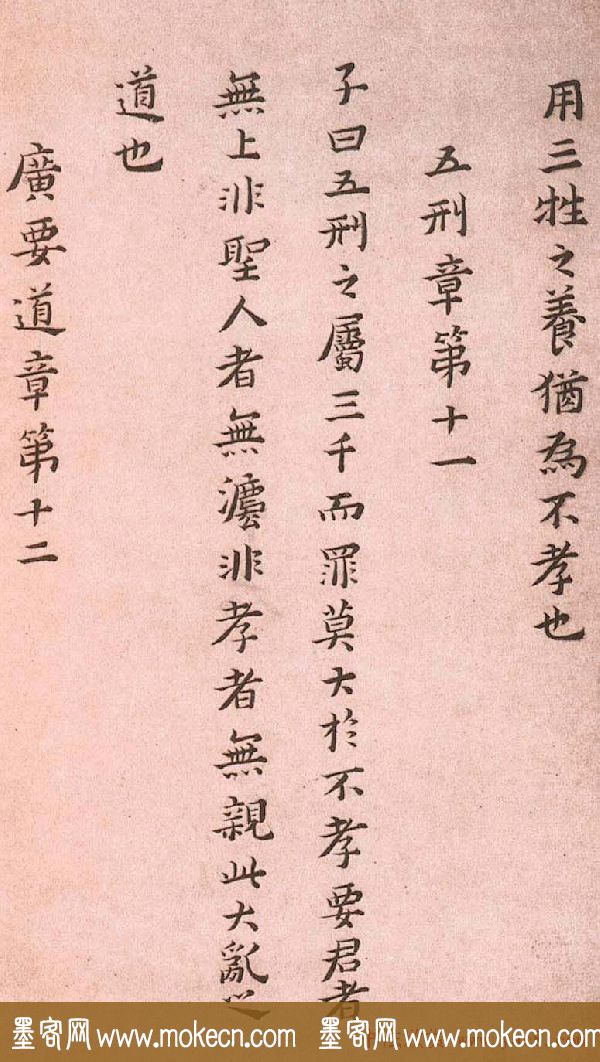 用三牲之養猶為不孝也
五刑章第十一
子曰五刑之屬三千而罪莫大於不孝要君者
無上非聖人者無灋非孝者無親此大亂之
道也
廣要道章第十二
墨客网 www.mokecn.com 墨客网 www.mokecn.com